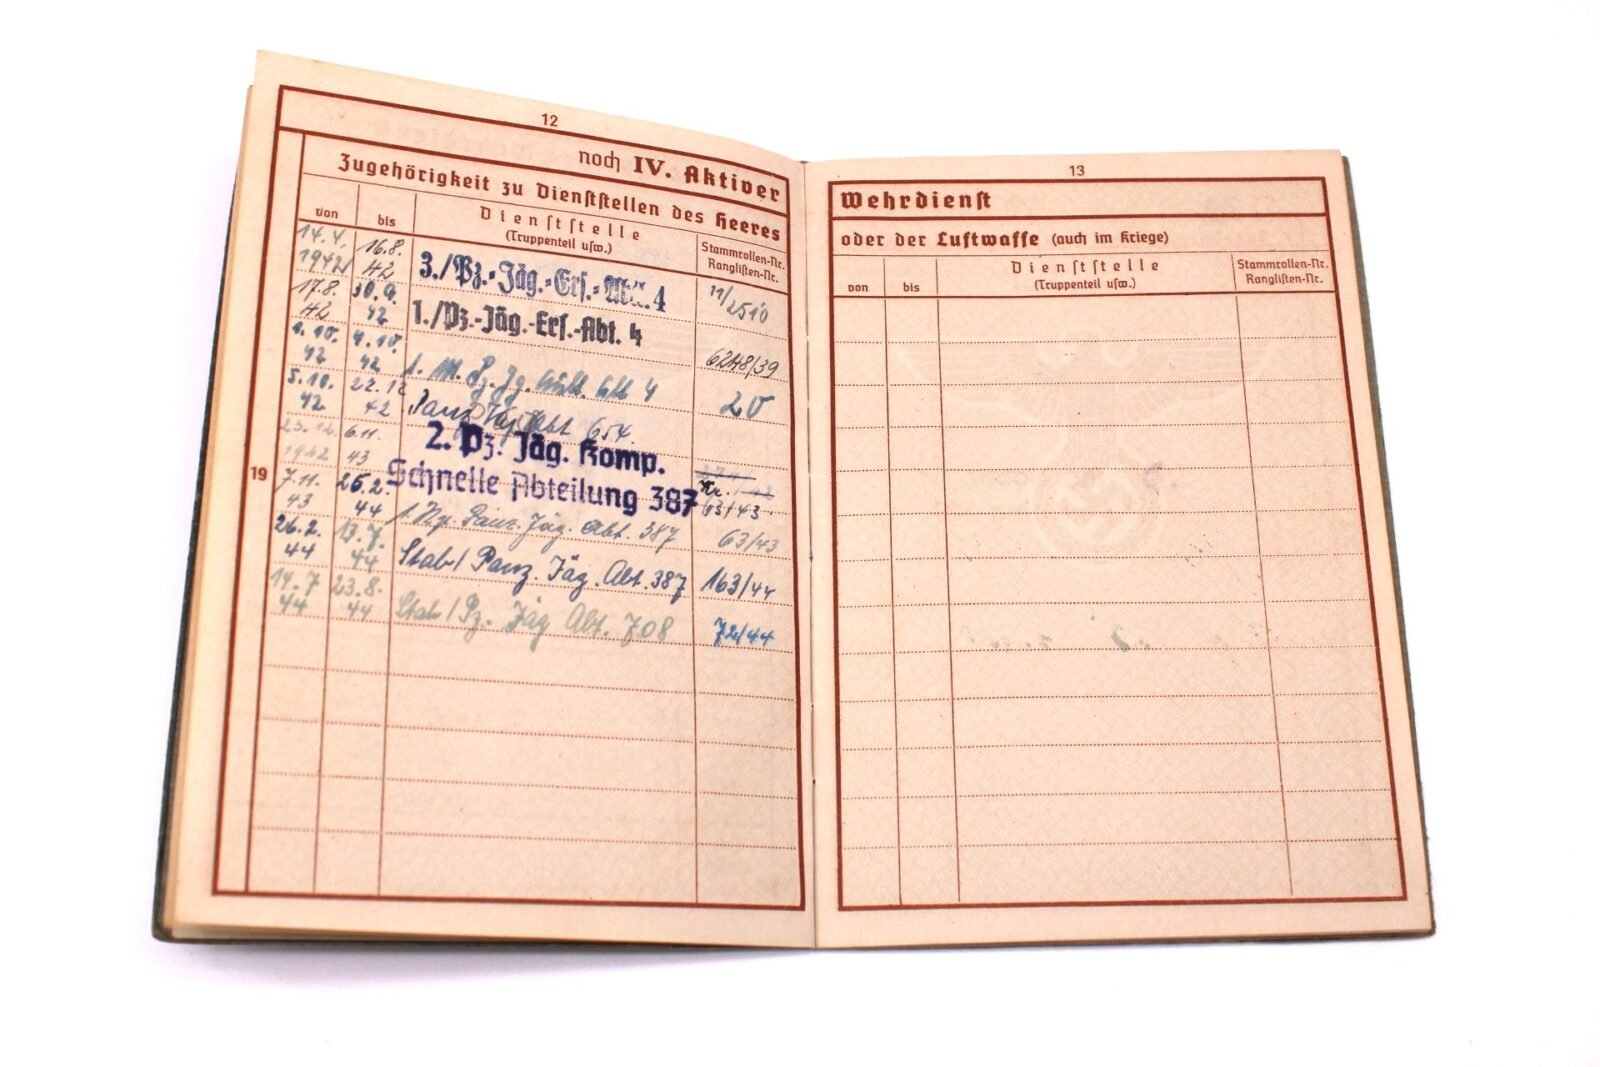 12
noch IV. Aktiver
Zugehörigkeit zu Dienststellen des Heeres
von bis Dienststelle (Truppenteil usw.) Stammrollen-Nr. Ranglisten-Nr.
14.4. 1942 16.8. 42 3./Pz.-Jäg.-Ers.-Abt. 4 11/2510
17.8. 42 30.9. 42 1./Pz.-Jäg.-Ers.-Abt. 4 6248/39
1.10. 42 4.10. 42 Pz. Jg. 4 20
5.10. 42 22.12 42 Abt 654.
23.12. 1942 6.11. 43 2. Pz. Jäg. Komp. Schnelle Abteilung 387 Nr. 63/43
19
7.11. 43 25.2. 44 1. Panz. Jäg. Abt. 387 63/43
26.2. 44 13.7. 44 Stab/Panz. Jäg. Abt. 387 163/44
14.7 44 23.8. 44 Stab/Pz. Jäg Abt. 708 72/44
13
Wehrdienst
oder der Luftwaffe (auch im Kriege)
von bis Dienststelle (Truppenteil usw.) Stammrollen-Nr. Ranglisten-Nr.